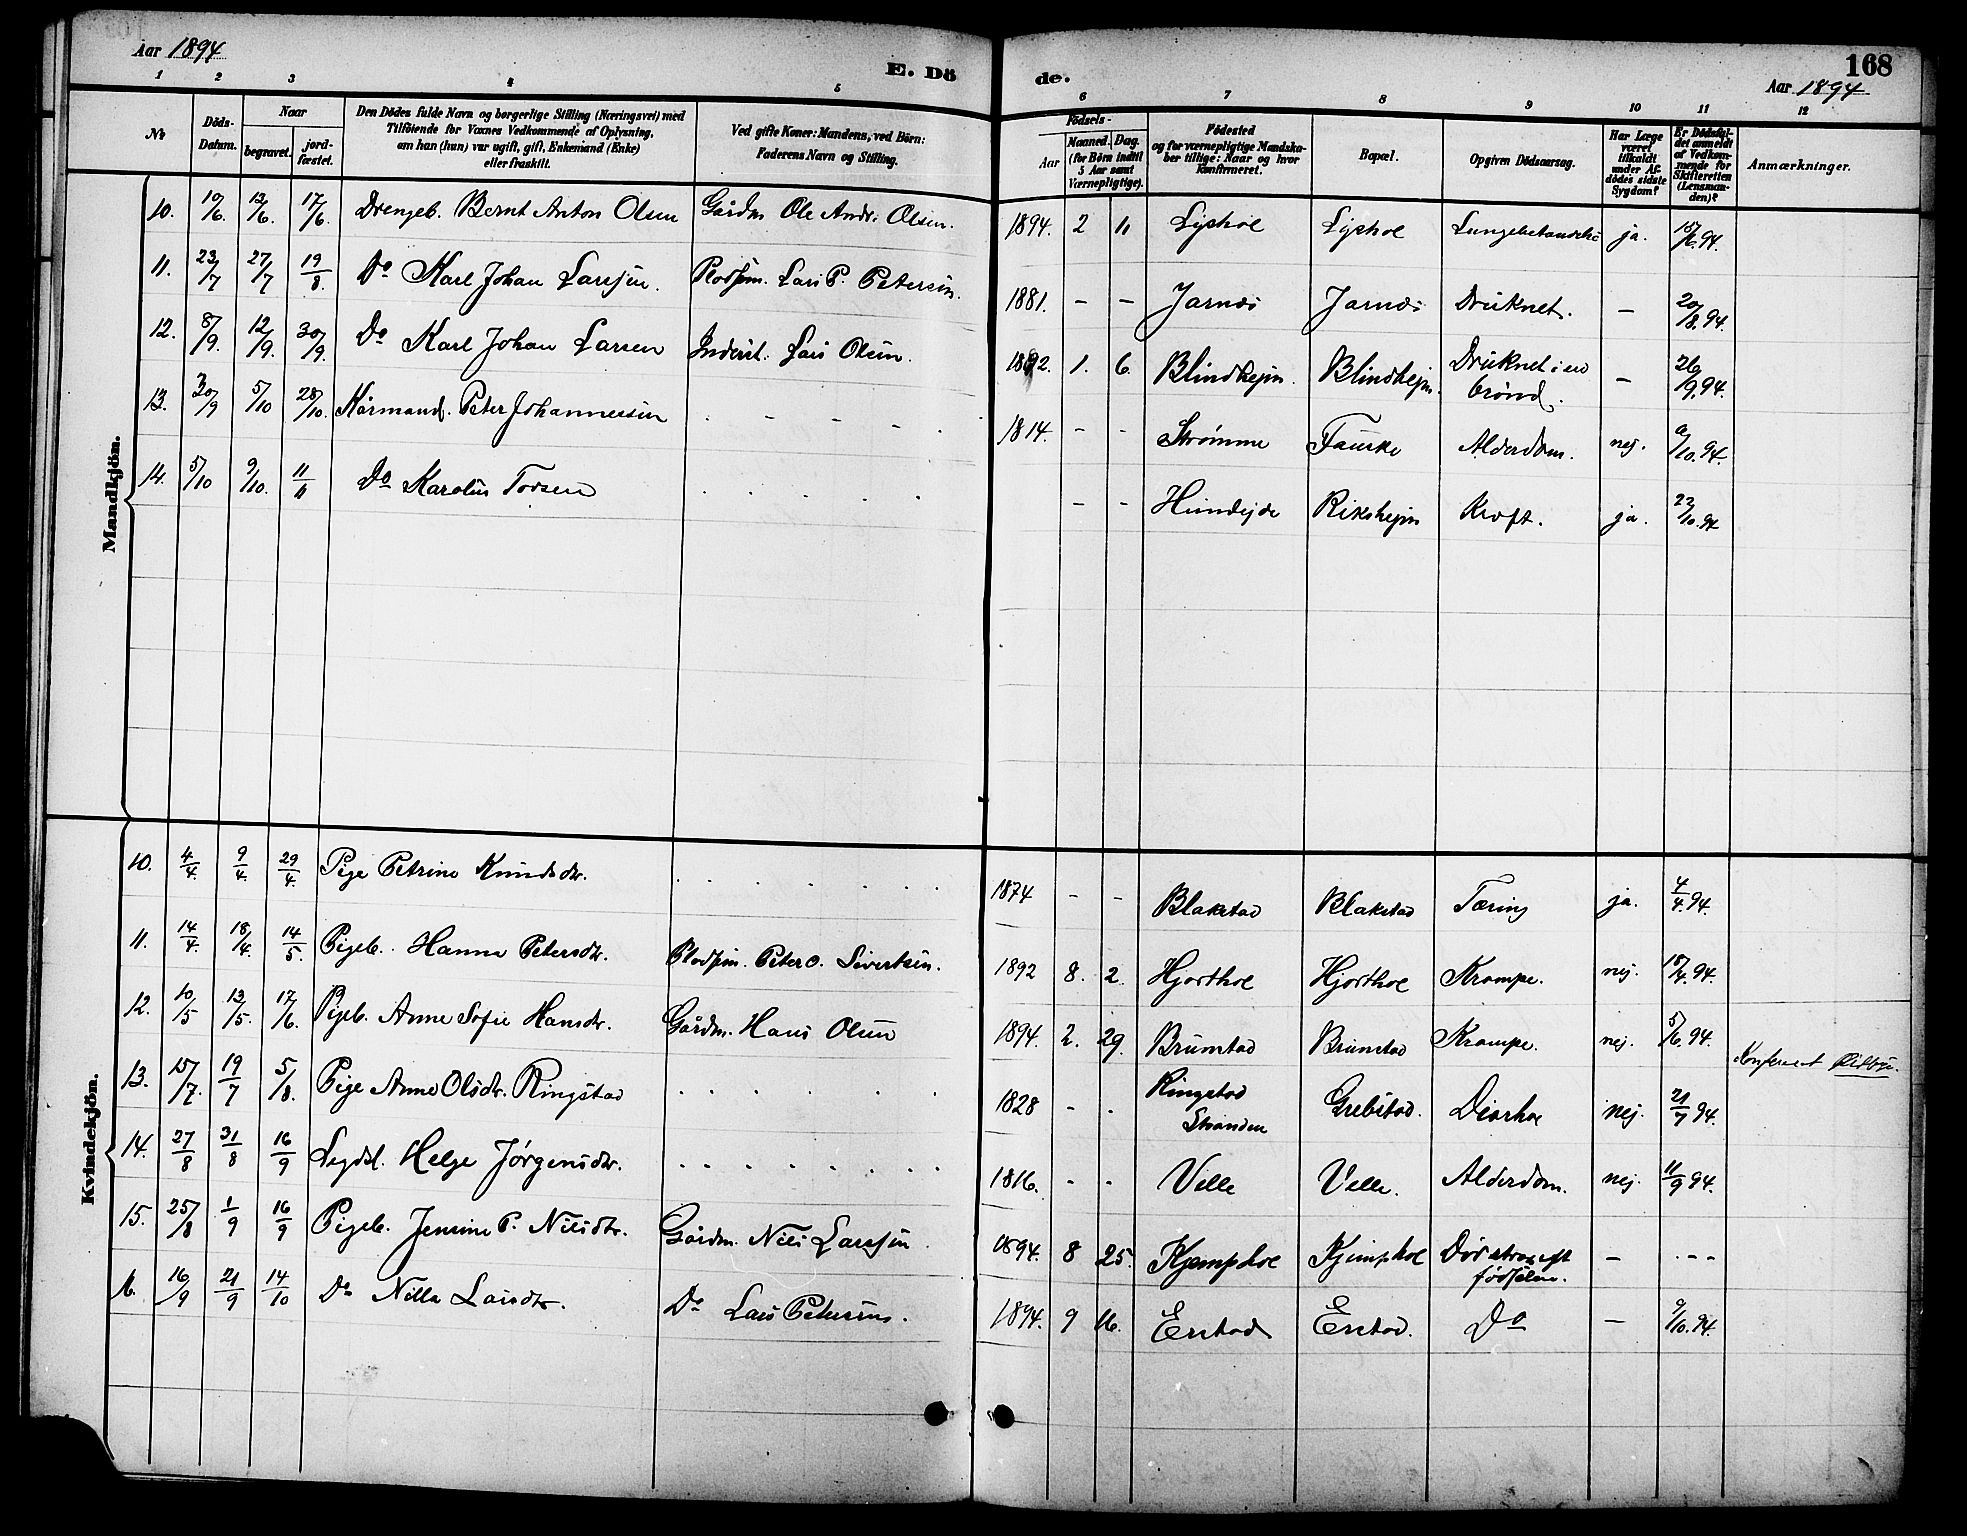 Aar 1894
E. Dö
de.
168
Aar 1894
1 2 3 4 5 6 7 8 9 10 11 12
No
Döds-Datum.
Naar
begravet.
jordfæstet.
Den Dödes fulde Navn og borgerlige Stilling (Næringsvei) med
Tilföiende for Voxnes Vedkommende af Oplysning,
om han (hun) var ugift, gift, Enkemand (Enke)
eller fraskilt.
Ved gifte Koner: Mandens, ved Börn:
Faderens Navn og Stilling.
Födsels-
Aar
Maaned. Dag.
(for Börn indtil
5 Aar samt
Værnepligtige).
Födested
og for værnepligtige Mandska-
ber tillige: Naar og hvor
konfirmeret.
Bopæl.
Opgiven Dödsaarsag.
Har Læge
været
tilkaldt
under Af-
dödes sidste
Sygdom?
Er Dödsfal-
det anmeldt
af Vedkom-
mende for
Skifteretten
(Lensman-
den)?
Anmærkninger.
Mandkjön.
10. 10/6. 13/6. 17/6. Drengeb. Bernt Anton Olsen Gårdm Ole Andr. Olsen. 1894. 2 11 Lyshol Lyshol ja. 18/6.94.
11. 23/7 27/7 19/8. Do Karl Johan Larsen. Pladsm. Lars P. Petersen. 1881. - - Jarnæs Jarnæs Druknet. - 20/8.94.
12. 8/9. 12/9. 30/9. Do Karl Johan Larsen Inderst. Lars Olsen. 1892. 1. 6. Blindhejm. Blindhejm. Druknet i en
brønd. - 26/9.94.
13. 30/9 5/10 28/10. Kårmand. Peter Johannessen 1814. - - Strømme Fauske Alderdom. nej. 9/10.94.
14. 5/10 9/10. 11/11 Do Karolus Torsen - - Hundejde Rekshejm Kræft. ja. 23/10.94
Kvindekjön.
10. 4/4. 9/4. 29/4. Pige Petrine Knudsdtr. 1874 - - Blakstad Blakstad Tæring ja. 4/4.94.
11. 14/4. 18/4. 14/5. Pigeb. Hanna Petersdtr. Pladsm. Peter O. Sivertsen. 1892 8. 2. Hjorthol Hjorthol Krampe. nej. 18/4.94.
12. 10/5 13/5. 17/6. Pigeb. Anne Sofie Hansdtr. Gårdm. Hans Olsen 1894. 2. 29. Brunstad Brunstad Krampe. nej. 5/6.94.
13. 15/7. 19/7 5/8. Pige Anne Olsdtr. Ringstad 1828 - - Ringstad
Stranden Grebstad. Diarhe nej. 21/7 94.
14. 27/8 31/8 16/9 Legdsl. Helge Jørgensdtr. 1816. - - Velle Velle. Alderdom. nej. 11/9 94.
15. 25/8 1/9 16/9 Pigeb. Jensine P. Nilsdtr. Gårdm. Nils Larsen 1894. 8 25. Kjemphol Kjemphol Død strax eft
fødselen. - - - -
16. 16/9 21/9 14/10 Do Nilla Larsdtr. Do Lars Petersens. 1894. 9 16. Erstad Erstad. Do - 9/10.94.